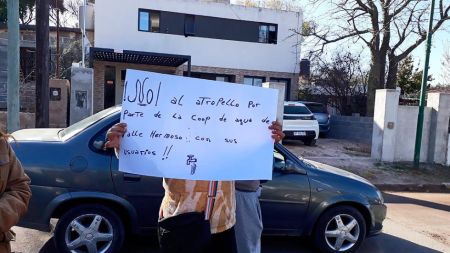 ¡¡No! al atropello por
parte de la Coop de agua de
Valle Hermoso ¡¡ con sus
usuarios !!